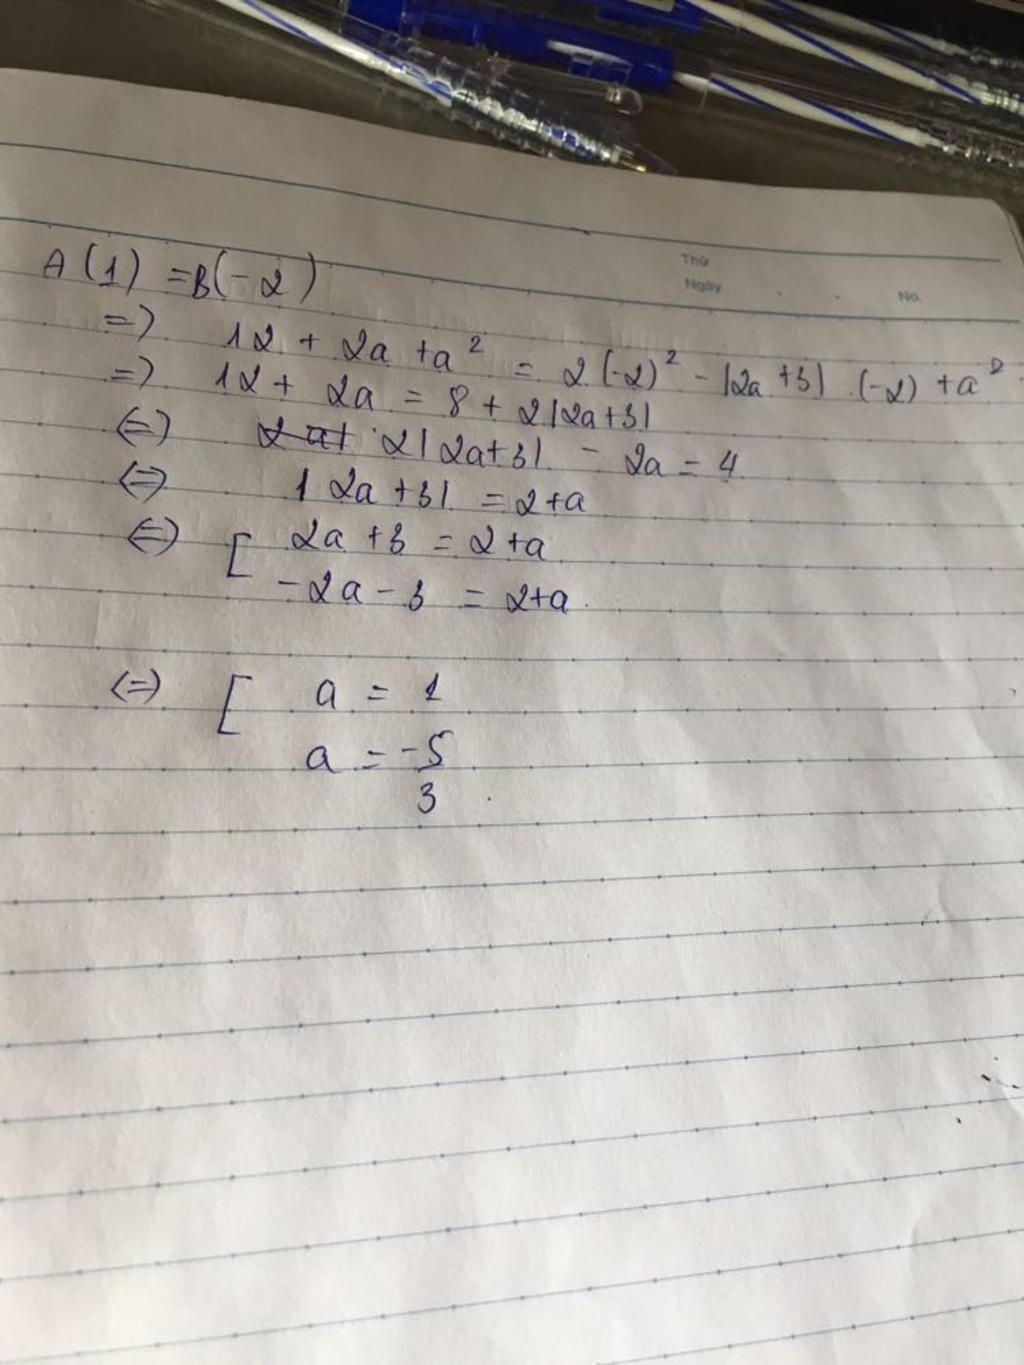 Thứ
Ngày
No.
A(1) = B(-2)
=> 12 + 2a + a² = 2(-2)² - |2a + 3| . (-2) + a²
=> 12 + 2a = 8 + 2|2a+3|
<=> 2|2a+3| - 2a = 4
<=> |2a+3| = 2+a
<=> [ 2a + 3 = 2+a
-2a - 3 = 2+a
<=> [ a = 1
a = -5/3